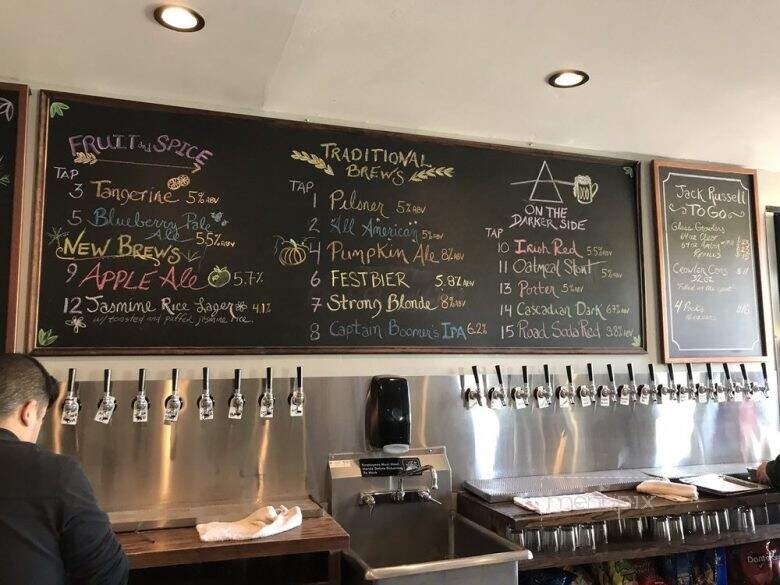 FRUIT and SPICE
TAP
3 Tangerine 5% ABV
5 Blueberry Pale
Ale 5.5% ABV
NEW BREWS
9 APPLE Ale 5.7%
12 Jasmine Rice Lager 4.1%
w/ toasted and puffed jasmine rice
TRADITIONAL
BREWS
TAP
1 Pilsner 5% ABV
2 All American 5% ABV
4 Pumpkin Ale 8% ABV
6 FESTBIER 5.8% ABV
7 Strong Blonde 8% ABV
8 Captain Boomer's IPA 6.2%
ON THE
DARKER SIDE
TAP
10 Irish Red 5.5% ABV
11 Oatmeal Stout 5% ABV
13 Porter 5% ABV
14 Cascadian Dark 6.7% ABV
15 Road Soda Red 3.8% ABV
Jack Russell
TO GO
Glass Growlers
64oz Clear
64oz Amber
Refills
Crowler Cans $11
32oz
Filled on the spot
4 Packs $16
16oz cans
Employees Must Wash
Hands Before Returning
To Work
menupix